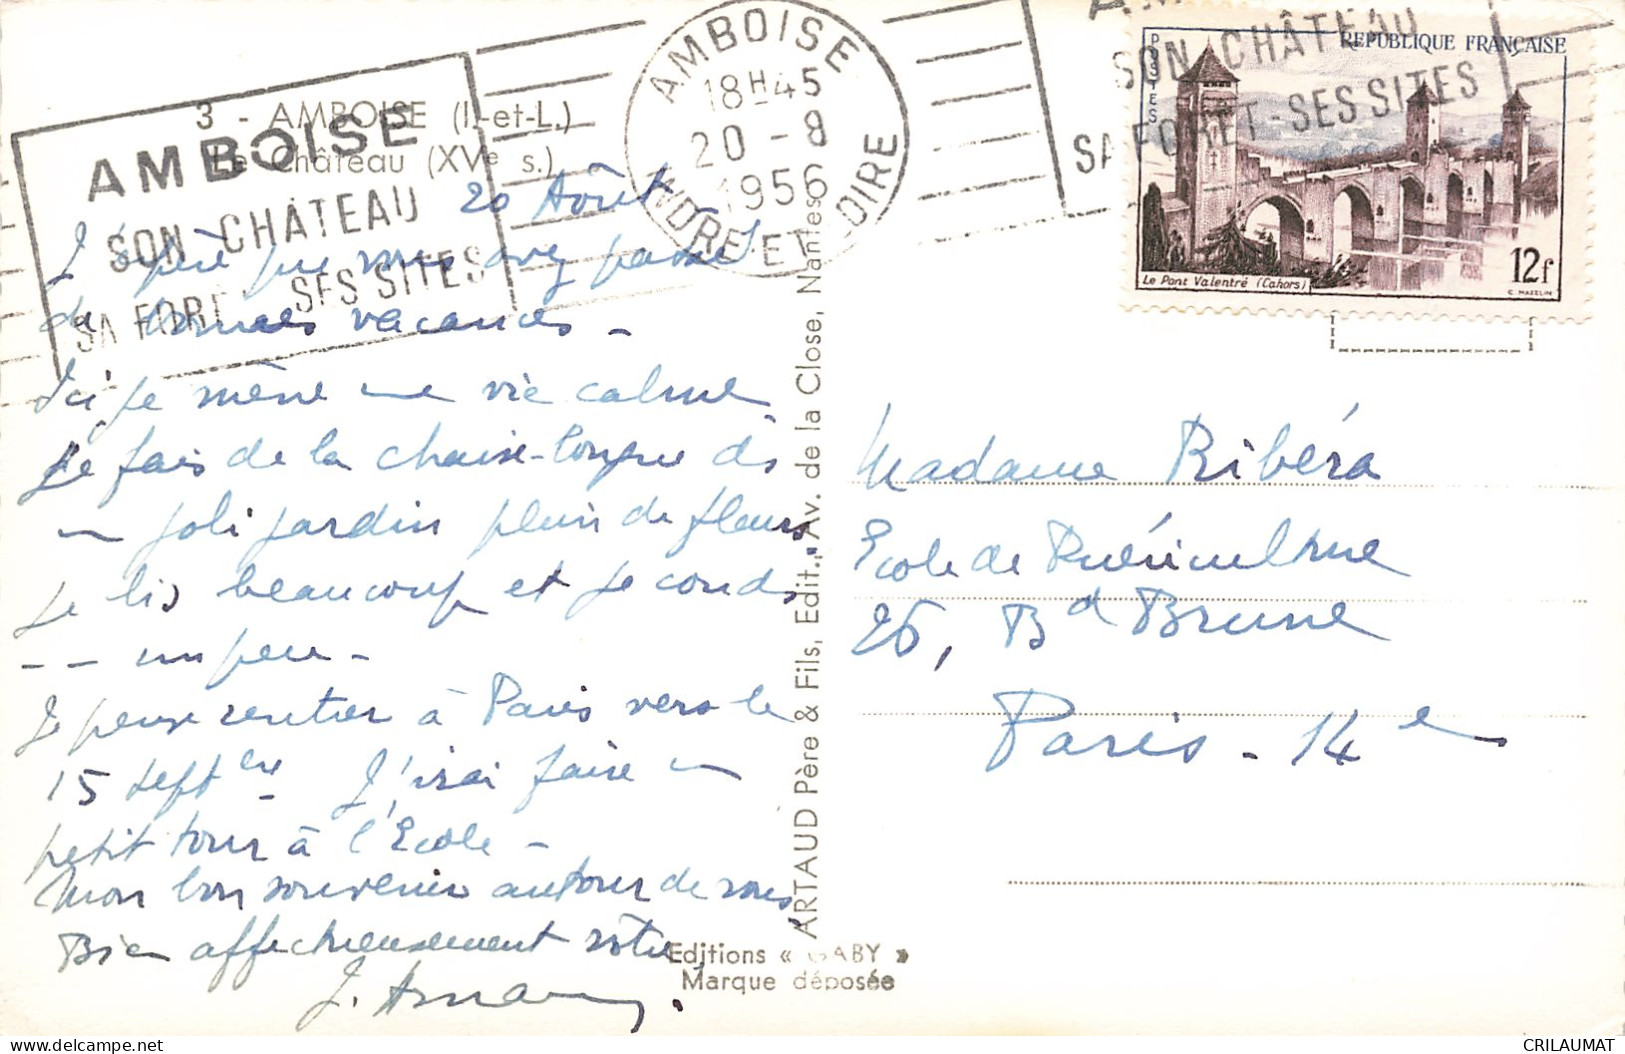 3 - AMBOISE (I.-et-L.)
Le Château (XVe s.)
AMBOISE
SON CHÂTEAU
SA FORET SES SITES
AMBOISE
18H45
20 -8
1956
INDRE ET LOIRE
SON CHÂTEAU
SA FORET - SES SITES
POSTES
REPUBLIQUE FRANÇAISE
Le Pont Valentré (Cahors)
12f
C. MAZELIN
20 Août
J'espère que vous avez passé
de bonnes vacances -
Ici je mène une vie calme,
Je fais de la chaise-longue ds
un joli jardin plein de fleurs
Je lis beaucoup et je couds
-- un peu -
Je pense rentrer à Paris vers le
15 septbre. J'irai faire un
petit tour à l'Ecole -
Mon bon souvenir autour de vous,
Bien affectueusement vôtre,
Madame Ribéra
Ecole de Puériculture
26, Bd Brune
Paris - 14e
ARTAUD Père & Fils, Edit., Av. de la Close, Nantes
Editions « GABY »
Marque déposée
CRILAUMAT